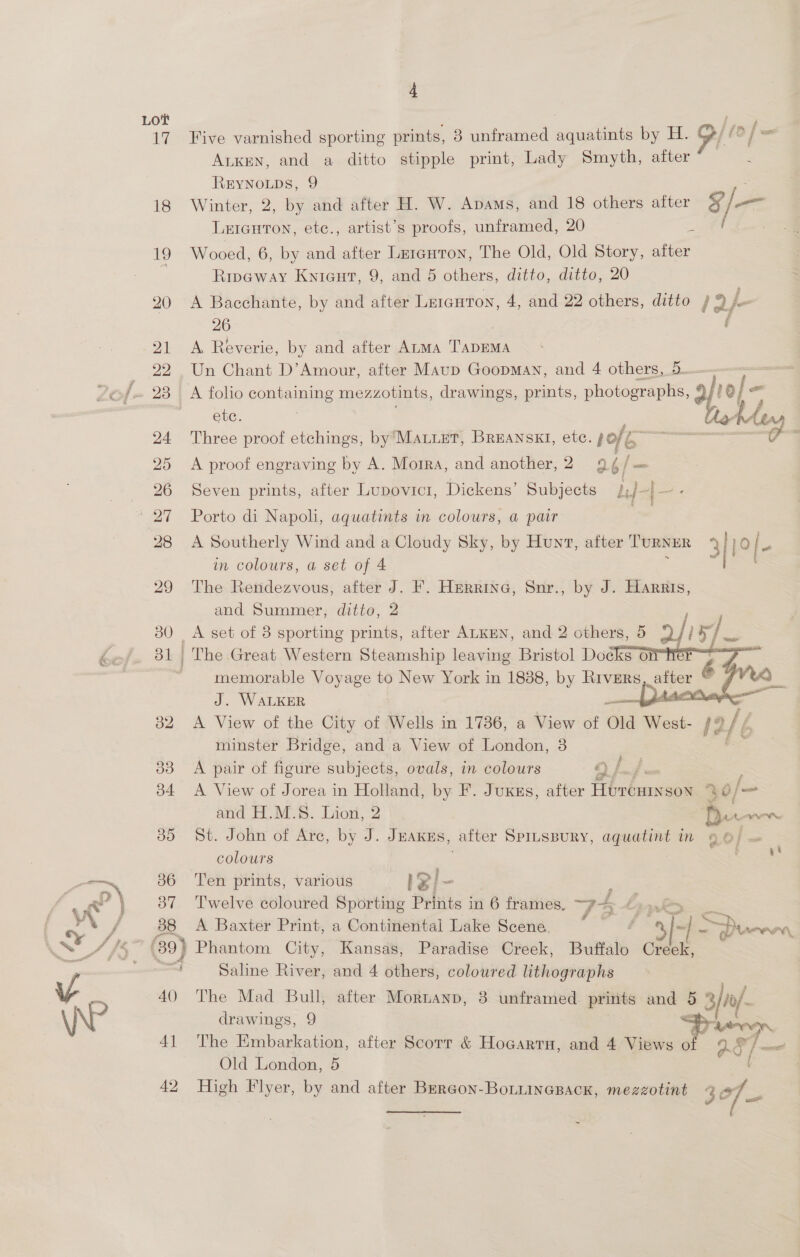 4
LOT
17 Five varnished sporting prints, 3 unframed aquatints by H. 9/10/-
ALKEN, and a ditto stipple print, Lady Smyth, after
REYNOLDS, 9
18 Winter, 2, by and after H. W. ADAMS, and 18 others after 8/-
LEIGHTON, etc., artist's proofs, unframed, 20
19 Wooed, 6, by and after LEIGHTON, The Old, Old Story, after
RIDGWAY KNIGHT, 9, and 5 others, ditto, ditto, 20
20 A Bacchante, by and after LEIGHTON, 4, and 22 others, ditto 12/-
26
21 A Reverie, by and after ALMA TADEMA
22 Un Chant D'Amour, after MAUD GOODMAN, and 4 others, 5
20/- 23 A folio containing mezzotints, drawings, prints, photographs, 2/10/-
etc.
24 Three proof etchings, by MALLET, BREANSKI, etc. 10/6
25 A proof engraving by A. MOTRA, and another, 2 26/-
26 Seven prints, after LUDOVICI, Dickens' Subjects 4/-/-
27 Porto di Napoli, aquatints in colours, a pair
28 A Southerly Wind and a Cloudy Sky, by HUNT, after TURNER 3/10/-
in colours, a set of 4
29 The Rendezvous, after J. F. HERRING, Snr., by J. HARRIS,
and Summer, ditto, 2
30 A set of 3 sporting prints, after ALKEN, and 2 others, 5 2/15/-
60/- 31 The Great Western Steamship leaving Bristol Docks on her
memorable Voyage to New York in 1838, by RIVERS, after 6 gns
J. WALKER
32 A View of the City of Wells in 1736, a View of Old West- 12/6
minster Bridge, and a View of London, 3
33 A pair of figure subjects, ovals, in colours 2/-/-
34 A View of Jorea in Holland, by F. JUKES, after HUTCHINSON 30/-
and H.M.S. Lion, 2
35 St. John of Arc, by J. JEAKES, after SPILSBURY, aquatint in 20/-
colours
36 Ten prints, various 12/-
37 Twelve coloured Sporting Prints in 6 frames,
38 A Baxter Print, a Continental Lake Scene. 3/-/-
39 Phantom City, Kansas, Paradise Creek, Buffalo Creek,
Saline River, and 4 others, coloured lithographs
40 The Mad Bull, after MORLAND, 3 unframed prints and 5 3/10/-
drawings, 9
41 The Embarkation, after SCOTT & HOGARTH, and 4 Views of 28/-
Old London, 5
42 High Flyer, by and after BERGON-BOLLINGBACK, mezzotint 30/-